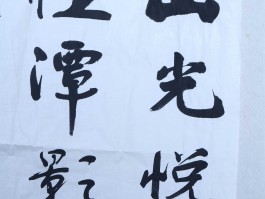 山光悦
性潭影